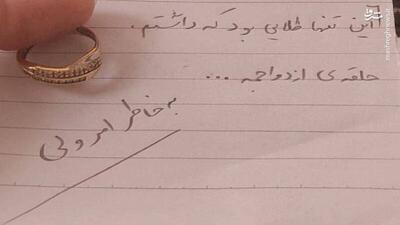 این تنها طلایی بود که داشتم.
حلقه‌ی ازدواجمه ...
به خاطر امر ولی
mashreghnews.ir